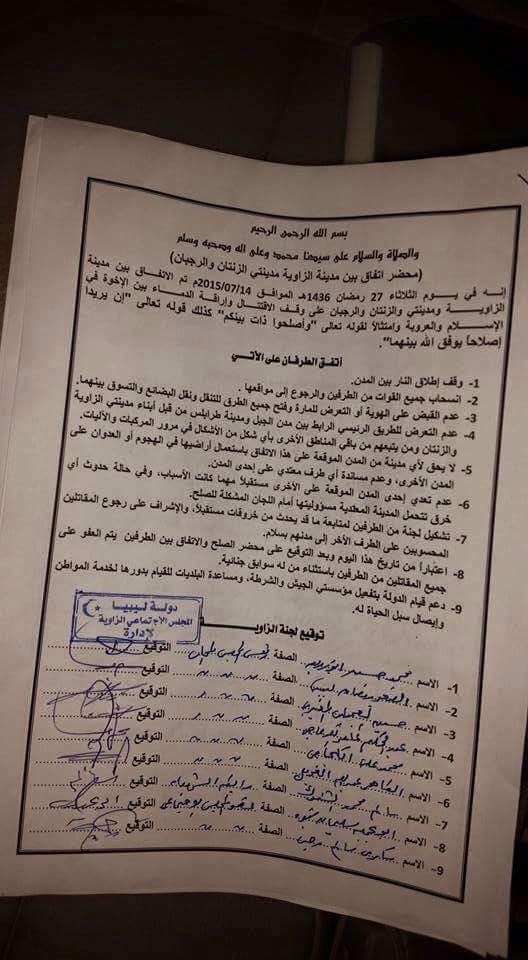 بسم الله الرحمن الرحيم
والصلاة والسلام على سيدنا محمد وعلى اله وصحبه وسلم
(محضر اتفاق بين مدينة الزاوية مدينتي الزنتان والرجبان)
إنه في يوم الثلاثاء 27 رمضان 1436هـ الموافق 2015/07/14م تم الاتفاق بين مدينة
الزاوية ومدينتي والزنتان والرجبان على وقف الاقتتال وإراقة الدماء بين الإخوة في
الإسلام والعروبة وامتثالاً لقوله تعالى "وأصلحوا ذات بينكم" كذلك قوله تعالى "إن يريدا
إصلاحاً يوفق الله بينهما".
أتفق الطرفان على الأتي
1- وقف إطلاق النار بين المدن.
2- انسحاب جميع القوات من الطرفين والرجوع إلى مواقعها.
3- عدم القبض على الهوية أو التعرض للمارة وفتح جميع الطرق للتنقل ونقل البضائع والتسوق بينهما.
4- عدم التعرض للطريق الرئيسي الرابط بين مدن الجبل ومدينة طرابلس من قبل أبناء مدينتي الزاوية
والزنتان ومن يتبعهم من باقي المناطق الأخرى بأي شكل من الأشكال في مرور المركبات والآليات.
5- لا يحق لأي مدينة من المدن الموقعة على هذا الاتفاق باستعمال أراضيها في الهجوم أو العدوان على
المدن الأخرى، وعدم مساندة أي طرف معتدي على إحدى المدن.
6- عدم تعدي إحدى المدن الموقعة على الأخرى مستقبلاً مهما كانت الأسباب، وفي حالة حدوث أي
خرق تتحمل المدينة المعتدية مسؤوليتها أمام اللجان المشكلة للصلح.
7- تشكيل لجنة من الطرفين لمتابعة ما قد يحدث من خروقات مستقبلاً، والإشراف على رجوع المقاتلين
المحسوبين على الطرف الآخر إلى مدنهم بسلام.
8- اعتباراً من تاريخ هذا اليوم وبعد التوقيع على محضر الصلح والاتفاق بين الطرفين يتم العفو على
جميع المقاتلين من الطرفين باستثناء من له سوابق جنائية.
9- دعم قيام الدولة بتفعيل مؤسستي الجيش والشرطة، ومساعدة البلديات للقيام بدورها لخدمة المواطن
وإيصال سبل الحياة له.
توقيع لجنة الزاوية
دولة ليبيا
المجلس الاجتماعي الزاوية
الإدارة
1- الاسم محمد الصفة التوقيع
2- الاسم الصفة التوقيع
3- الاسم الصفة التوقيع
4- الاسم الصفة التوقيع
5- الاسم محمد علي الصفة التوقيع
6- الاسم الصفة التوقيع
7- الاسم سالم محمد الصفة التوقيع
8- الاسم الصفة التوقيع
9- الاسم سالم الصفة التوقيع